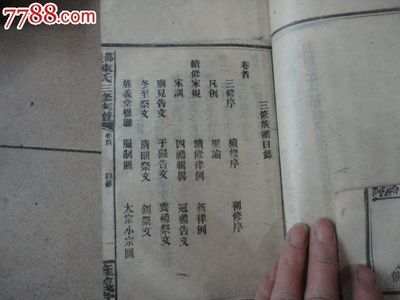 7788.com
三修族譜目錄
卷首
三修序 續修序 初修序
凡例 聖諭
續修家規 續修律例 新律例
家訓 四禮輯畧 冠禮告文
廟見告文 于歸告文 喪禮祭文
冬至祭文 清明祭文 
旌義堂 服制圖 大宗小宗圖
陳氏三修族譜 卷首 目錄 一